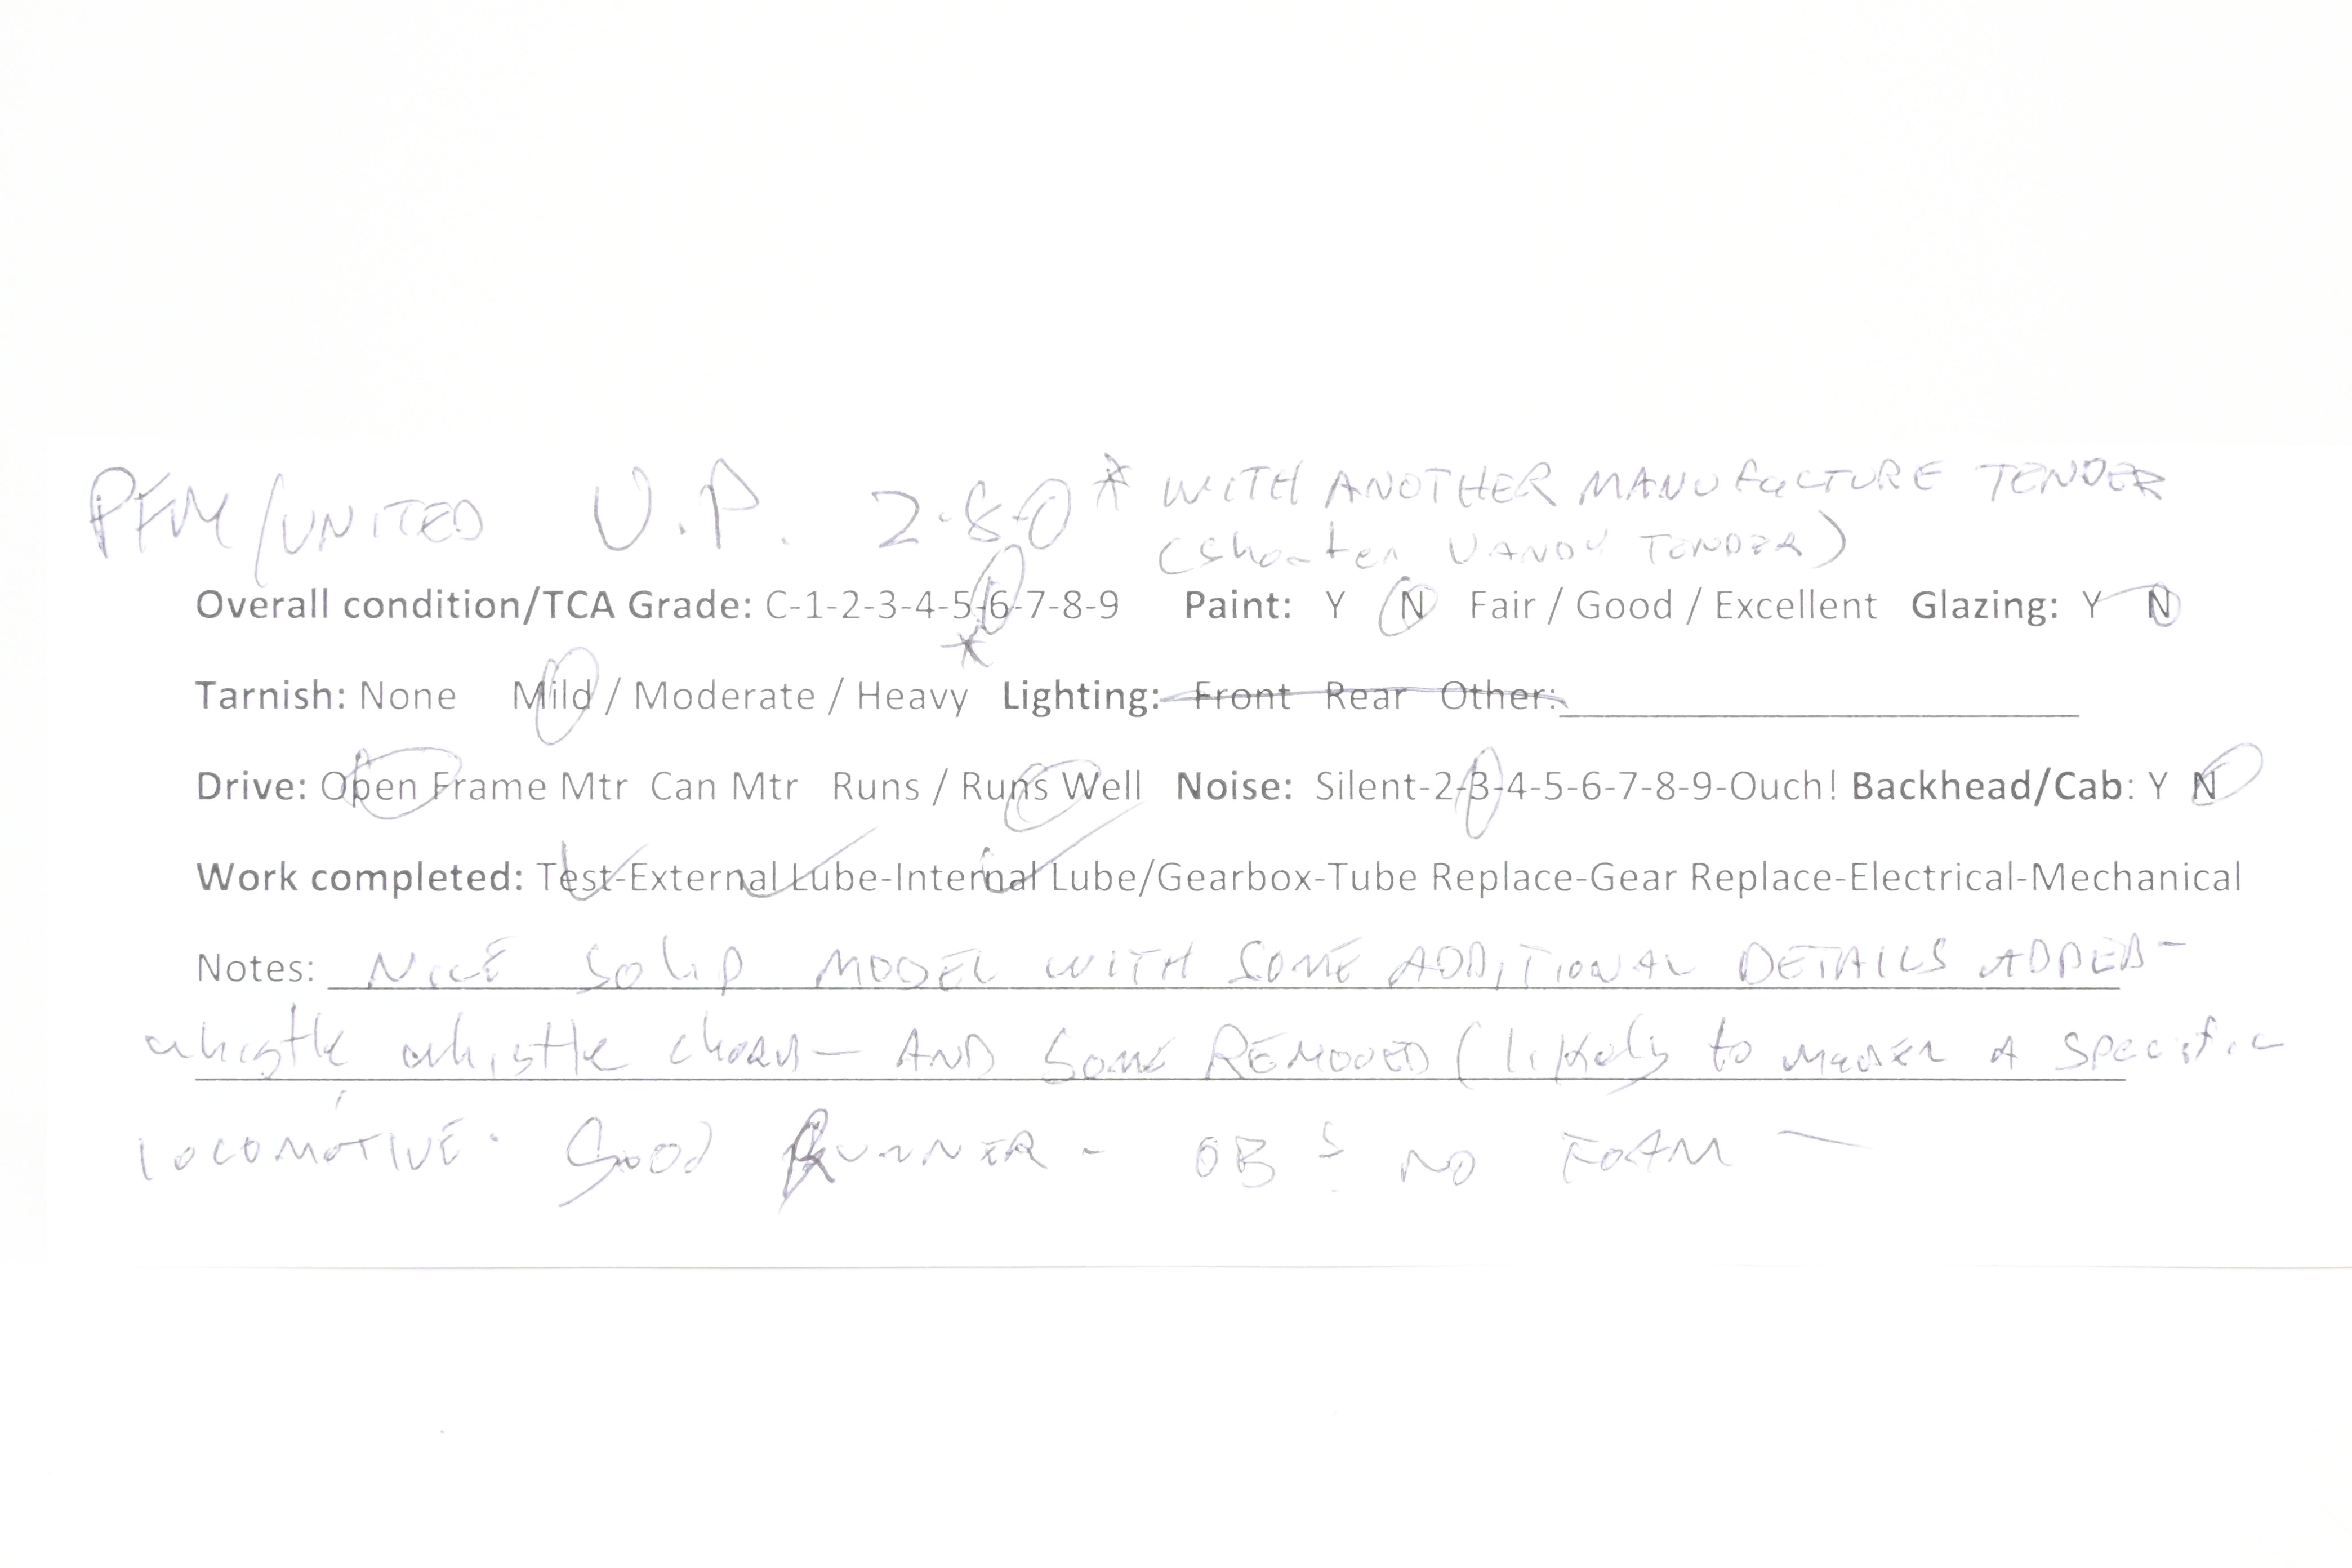 PFM/UNITED U.P. 2-8-0 * WITH ANOTHER MANUFACTURE TENDER
(Shorter VANDY TENDER)
Overall condition/TCA Grade: C-1-2-3-4-5-6-7-8-9 Paint: Y N Fair / Good / Excellent Glazing: Y N
*
Tarnish: None Mild / Moderate / Heavy Lighting: Front Rear Other:
Drive: Open Frame Mtr Can Mtr Runs / Runs Well Noise: Silent-2-3-4-5-6-7-8-9-Ouch! Backhead/Cab: Y N
Work completed: Test-External Lube-Internal Lube/Gearbox-Tube Replace-Gear Replace-Electrical-Mechanical
Notes: NICE SOLID MODEL WITH SOME ADDITIONAL DETAILS ADDED-
whistle, whistle chord - AND SOME REMOVED (likely to a specific
LOCOMOTIVE. Good RUNNER - OB: NO FOAM -